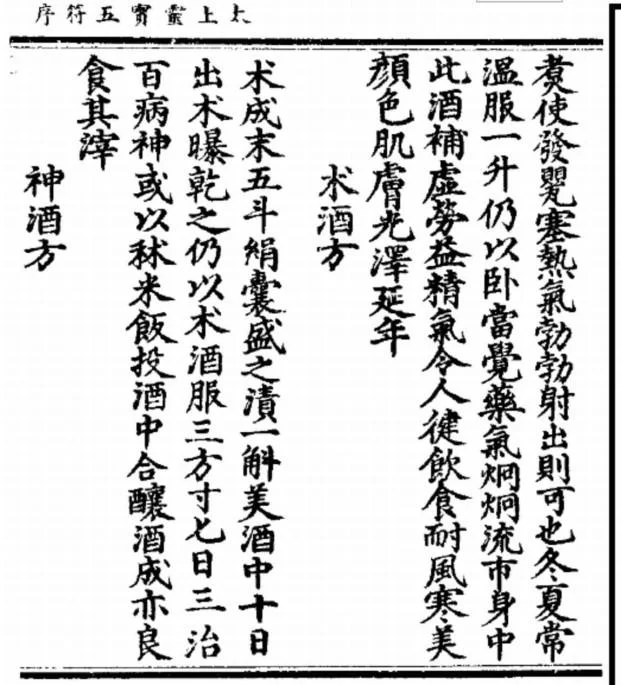 太上靈寳五符序
煑使發甖塞熱氣勃勃射出則可也冬夏常
溫服一升仍以卧當覺藥氣炯炯流帀身中
此酒補虛勞益精氣令人徤飲食耐風寒美
顔色肌膚光澤延年
术酒方
术成末五斗絹囊盛之漬一斛美酒中十日
出术曝乾之仍以术酒服三方寸匕日三治
百病神或以秫米飯投酒中合釀酒成亦良
食其滓
神酒方